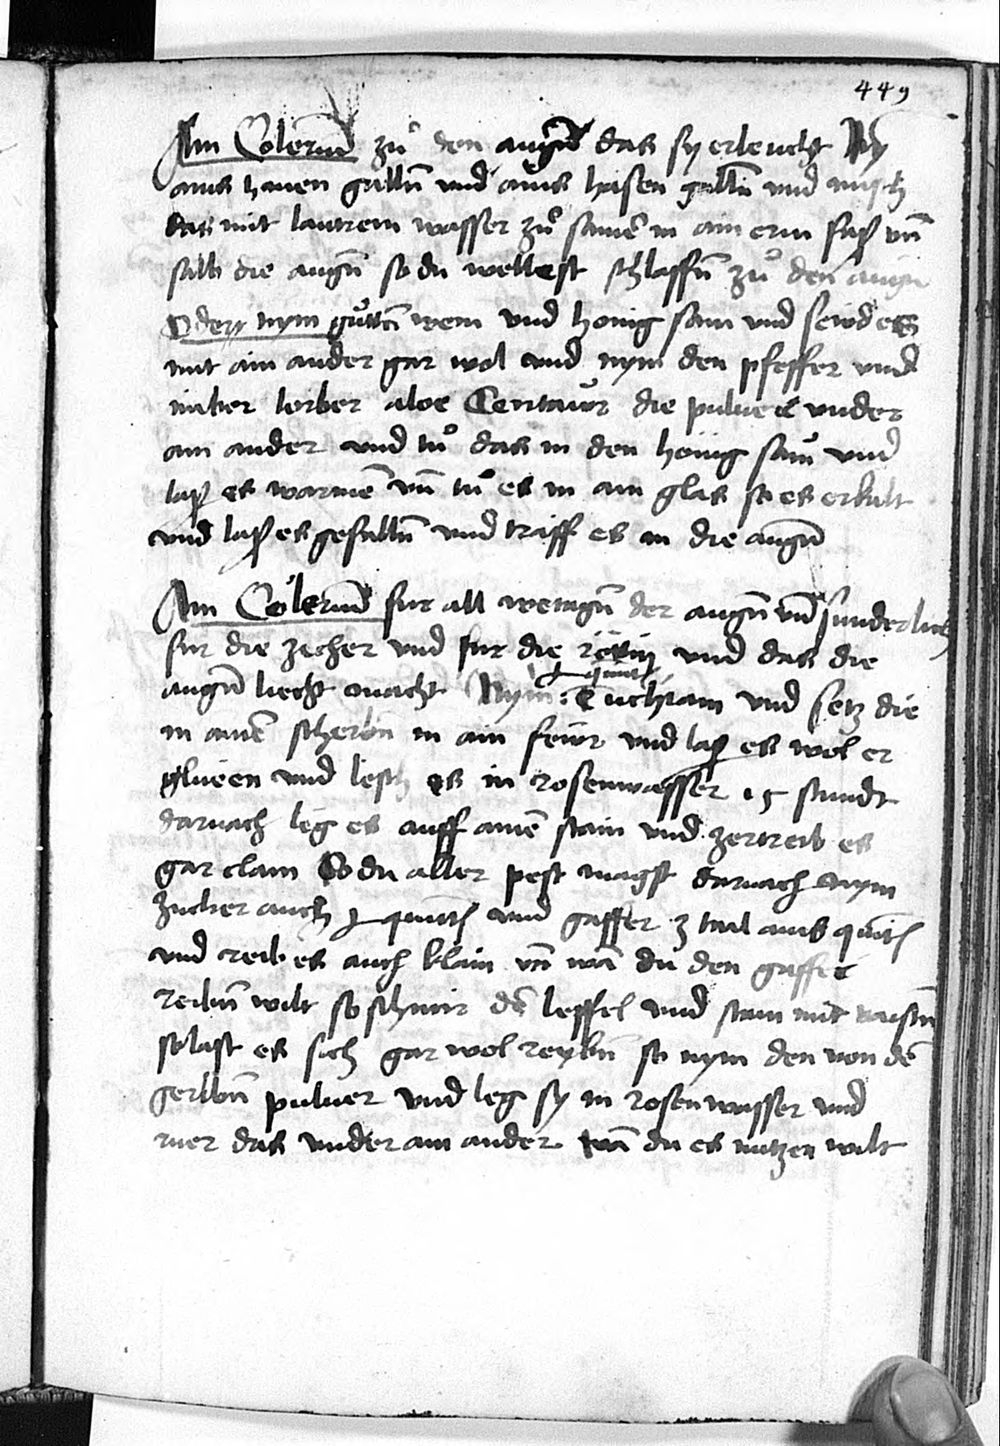 449
Ain Coleriu̅ zů den auge̅ das sy erleucht Ny̅
ains hanen gallen̅ und ains hasen galle̅ und misch
das mit lautrem wasser zůsame̅ in ain erin faß vn̅
salb die auge̅ so du wellest schlaffe̅ zů den auge̅
Oder nym gůtte̅ wein und honig sam und seud es
mit ain ander gar wol und nym den pfeffer und
imber lorber aloe Centaur die puluer under
ain ander und tů das in den honig sam und
laß es warme̅ vn̅ tů es in ain glas so es erkalt
und laß es gefalle̅ und triff es in die auge̅
Ain Coleriu̅ fur all wetage̅ der auge̅ vn̅ sunderlich
fur die zecher und fur die rötin und das die
auge̅ liecht macht Nym Tuchiam und setz die
in aine̅ scherbe̅ in ain feur und laß es wol er
glueen und lesch es in rosenwasser 15 stundt
darnach leg es auff aine̅ stain und zertreib es
gar clain So du aller pest magst darnach nym
zucker auch 1 quint und gaffer 3 tail ains quint
und reib es auch klain vn̅ wa̅ du den gaffer
reibe̅ wilt so schmir de̅ leffel und stain mit
so last es sich gar wol reybe̅ so nym den von de̅
puluer und leg sy in rosenwasser und
ruer das under ain ander wa̅ du es nutzen wilt